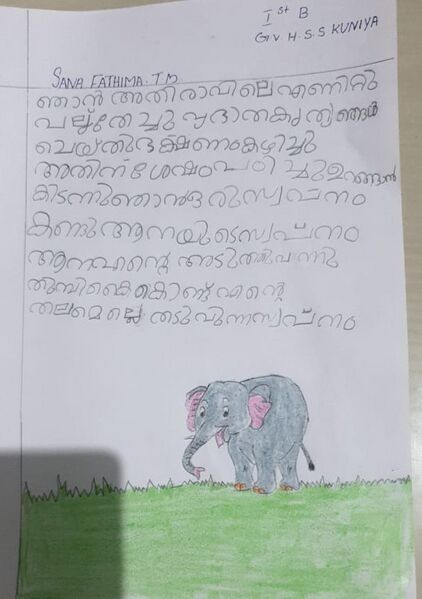 Ist B
G.V.H.S.S KUNIYA
SANA FATHIMA.T.M.
ഞാൻ അതിരാവിലെ എണിറ്റു
പല്ല്തേച്ചു പ്രഭാതകൃത്യങ്ങൾ
ചെയ്തുഭക്ഷണംകഴിച്ചു
അതിന് ശേഷംപഠിച്ചുഉറങ്ങാൻ
കിടന്നുഞാൻഒരുസ്വപ്നം
കണ്ടുആനയുടെസ്വപ്നം
ആനഎൻ്റെ അടുത്തുവന്നു
തുമ്പികൈകൊണ്ട് എൻ്റെ
തലമെല്ലെ തടവുന്നസ്വപ്നം